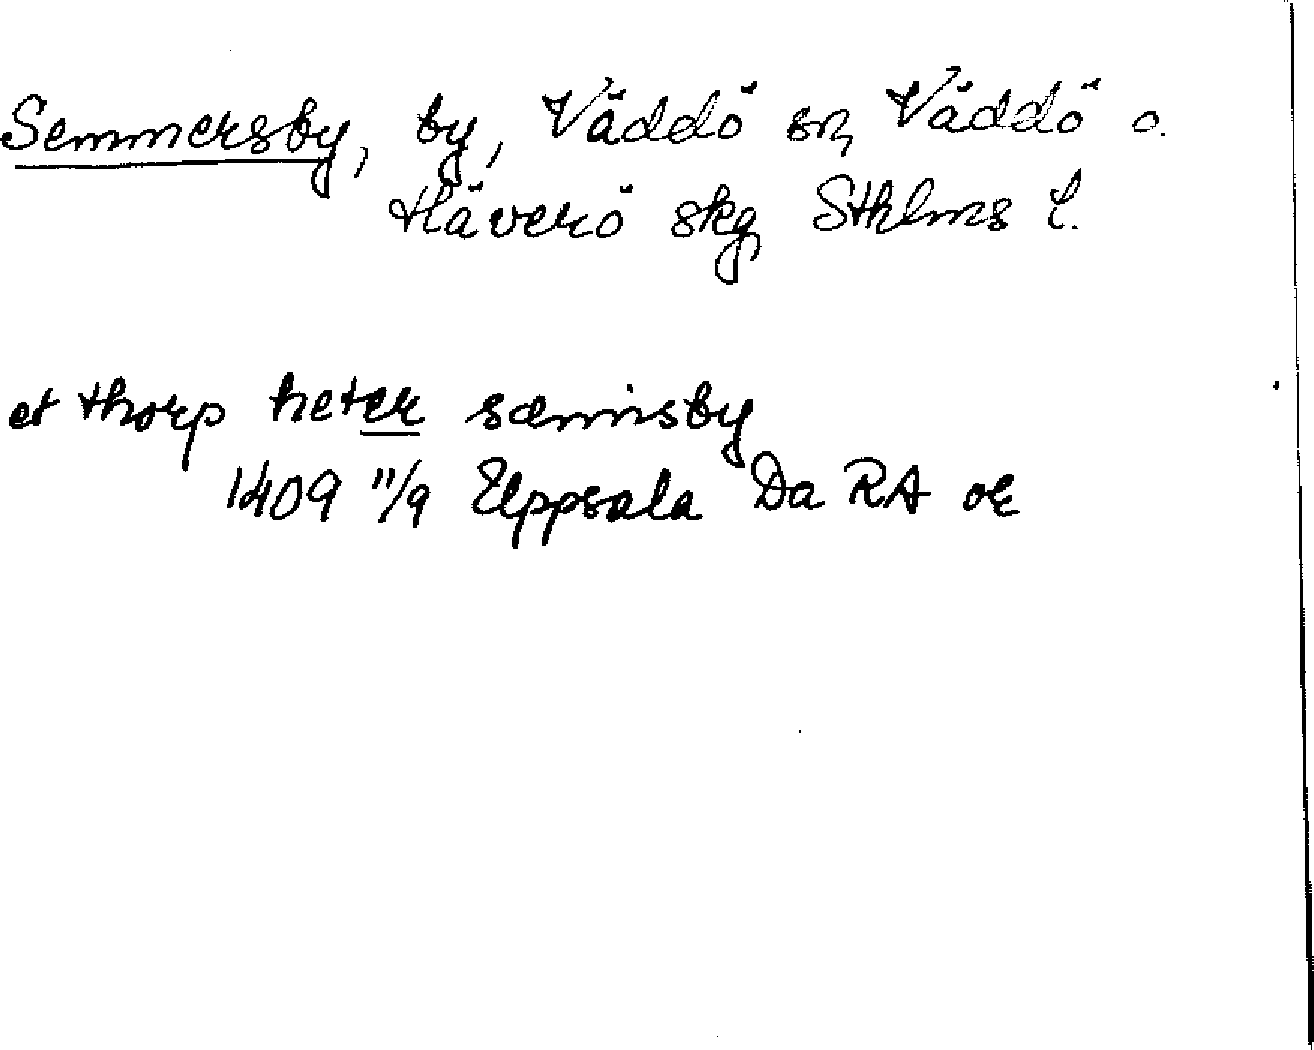 Semmersby, by, Väddö sn, Väddö o.
Häverö skg, Sthlms l.
et thorp heter sæmisby
1409 11/9 Uppsala Da RA or